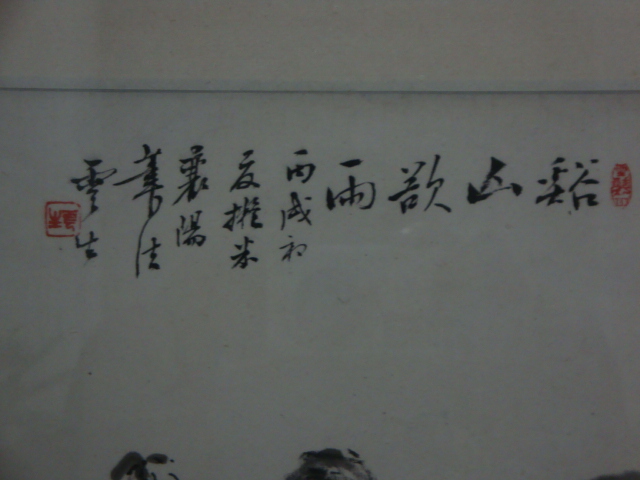 谿山欲雨
丙戌初
夏擬米
襄陽
筆法
雲生